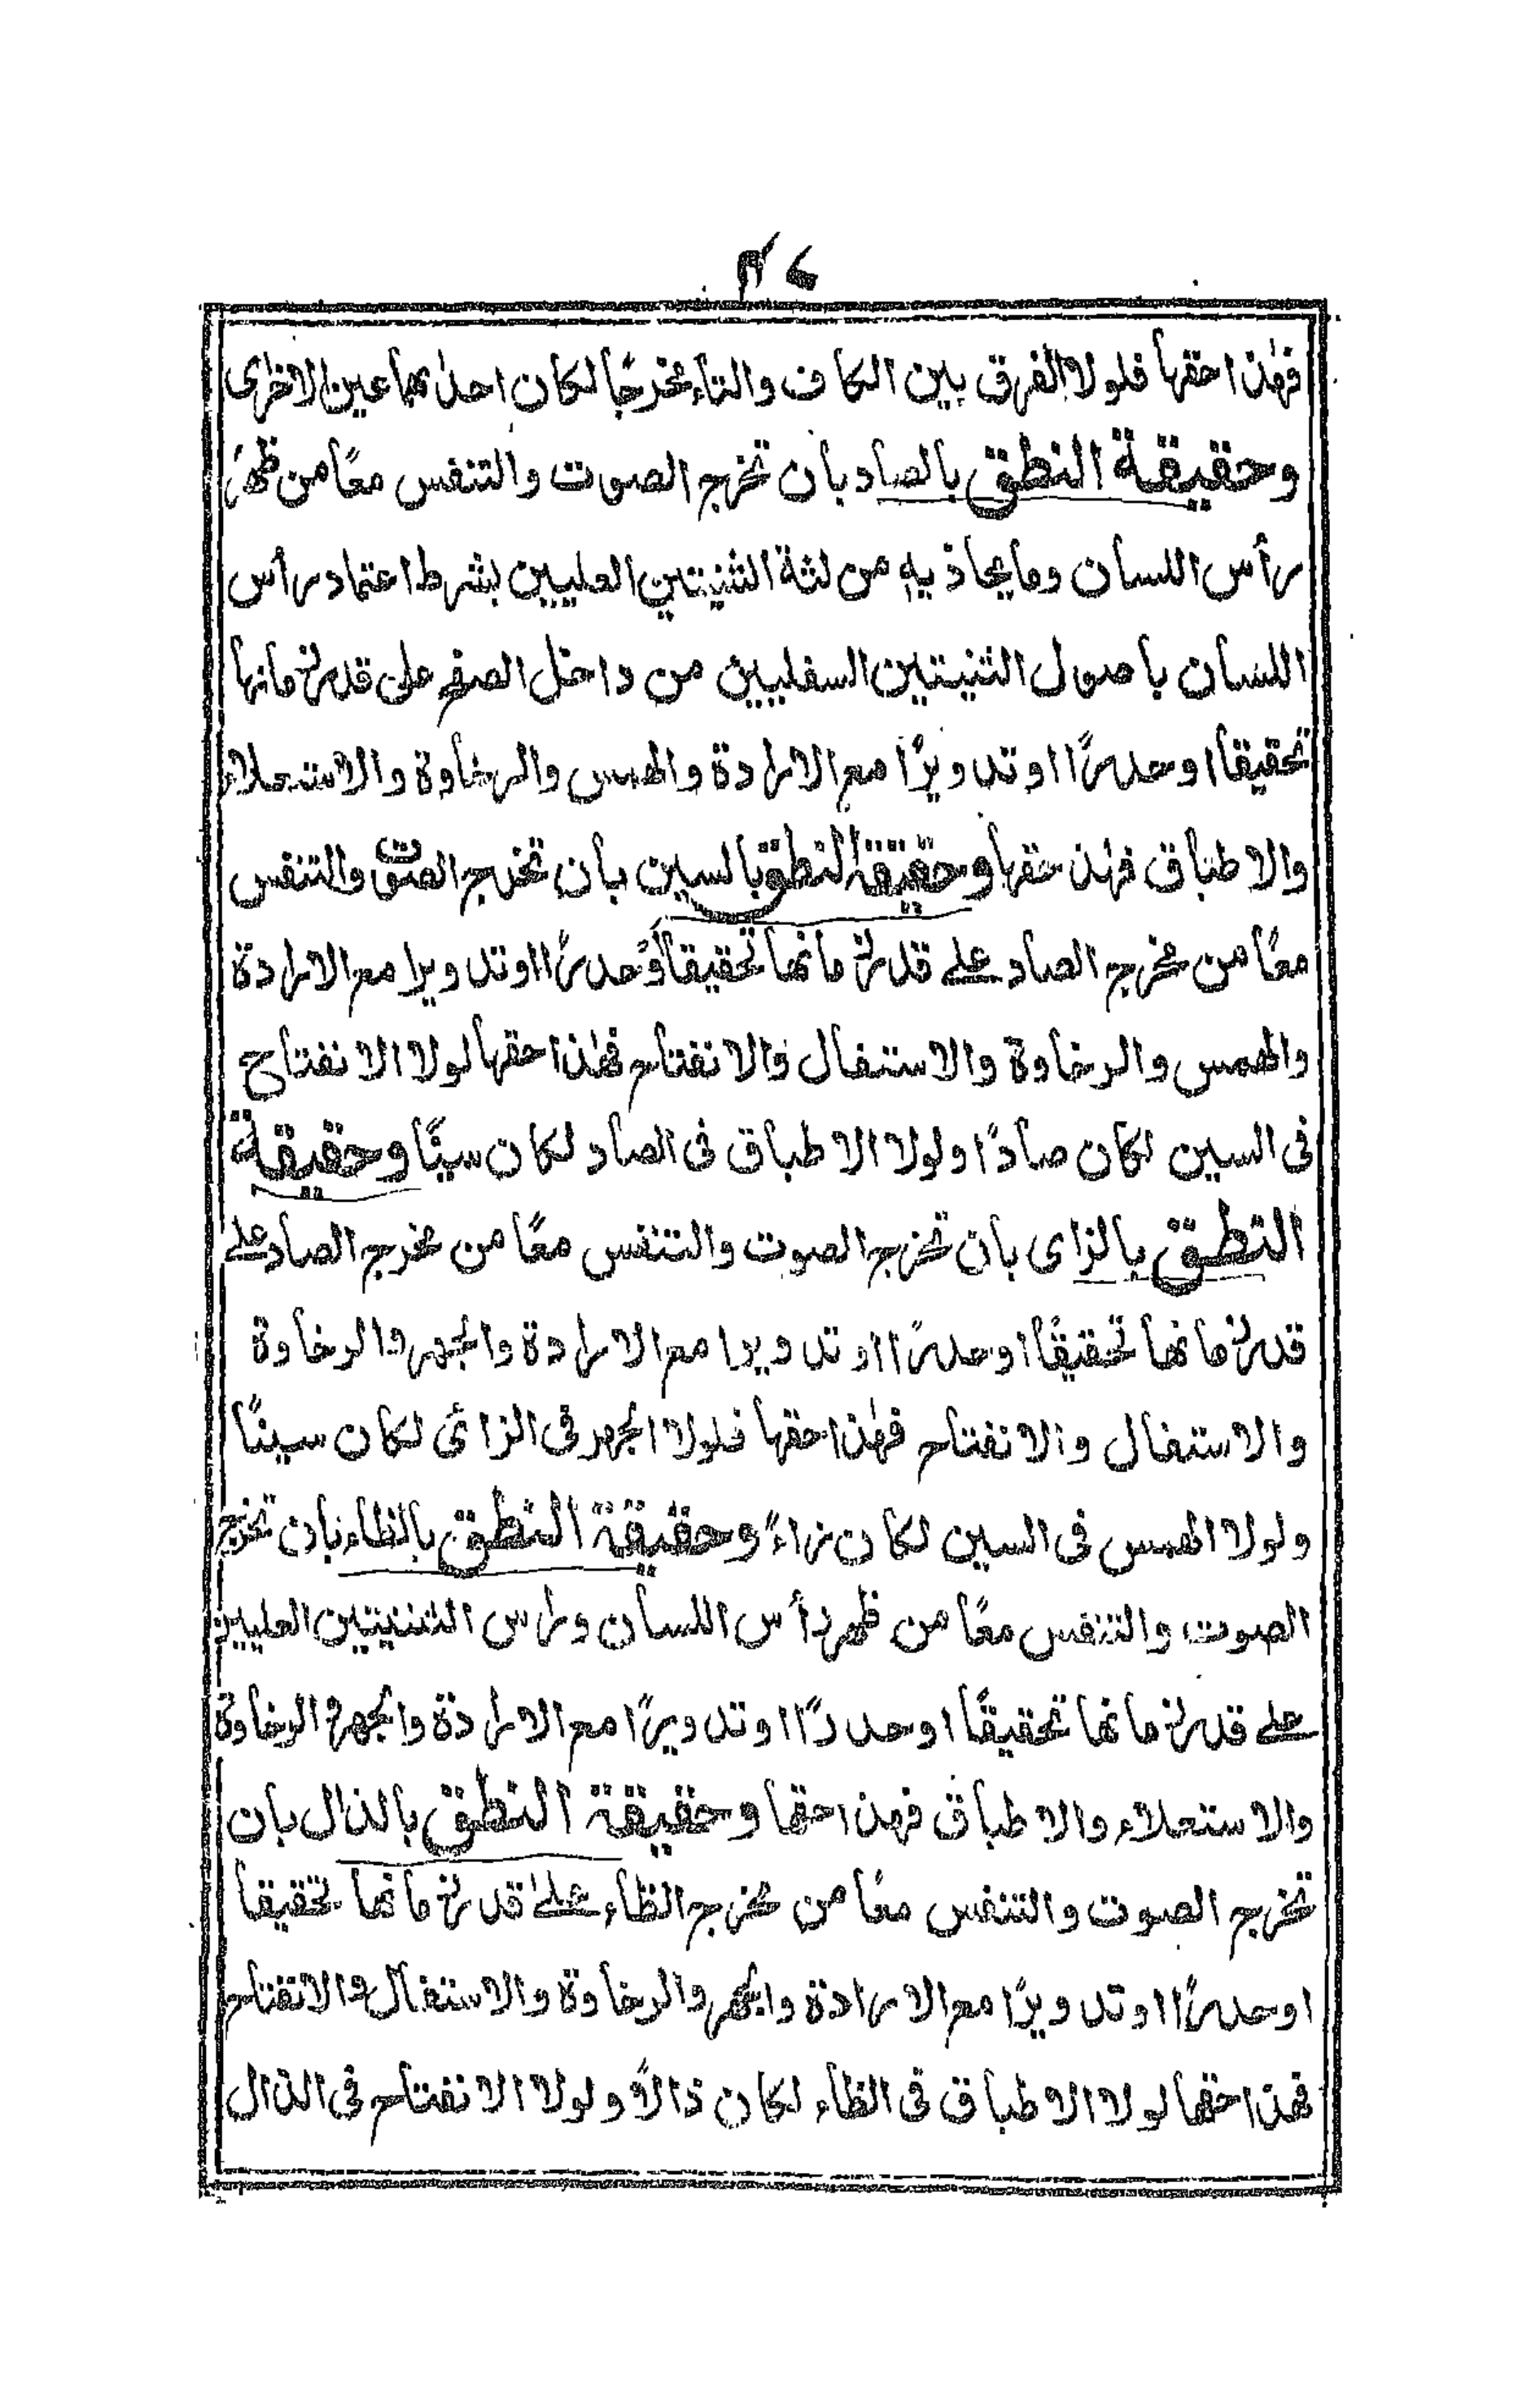 فهذا حقها فلولا الفرق بين الكاف والتاء مخرجًا لكان احدٰهما عين الاخرٰى
وحقيقة النطق بالصاد بأن تخرج الصوت والتنفس معًا من ظهر
رأس اللسان وما يحاذيه من لثة الثنيتين العليين بشرط اعتماد رأس
اللسان باصول الثنيتين السفليين من داخل الصفح على قدر زمانها
تحقيقا اوحدرًا اوتدويرًا مع الارادة والهمس والرخاوة والاستعلاء
والاطباق فهذا حقها وحقيقة النطق بالسين بأن تخرج الصوت والتنفس
معًا من مخرج الصاد على قدر زمانها تحقيقا اوحدرًا اوتدويرا مع الارادة
والهمس والرخاوة والاستفال والانفتاح فهٰذا حقها لولا الانفتاح
فى السين لكان صادًا ولولا الاطباق فى الصاد لكان سينًا وحقيقة
النطق بالزاى بان تخرج الصوت والتنفس معًا من مخرج الصاد على
قدر زمانها تحقيقًا اوحدرًا اوتدويرا مع الارادة والجهر والرخاوة
والاستفال والانفتاح فهٰذا حقها فلولا الجهر فى الزائى لكان سينًا
ولولا الهمس فى السين لكان زاءً وحقيقة النطق بالظاء بان تخرج
الصوت والتنفس معًا من ظهر رأس اللسان وراس الثنيتين العليين
على قدر زمانها تحقيقًا اوحدرًا اوتدويرًا مع الارادة والجهر والرخاوة
والاستعلاء والاطباق فهذا حقها وحقيقة النطق بالذال بان
تخرج الصوت والتنفس معًا من مخرج الظاء علىٰ قدر زمانها تحقيقا
اوحدرًا اوتدويرًا مع الارادة والجهر والرخاوة والاستفال والانفتاح
فهذا حقها لولا الاطباق فى الظاء لكان ذالاً ولولا الانفتاح فى الذال